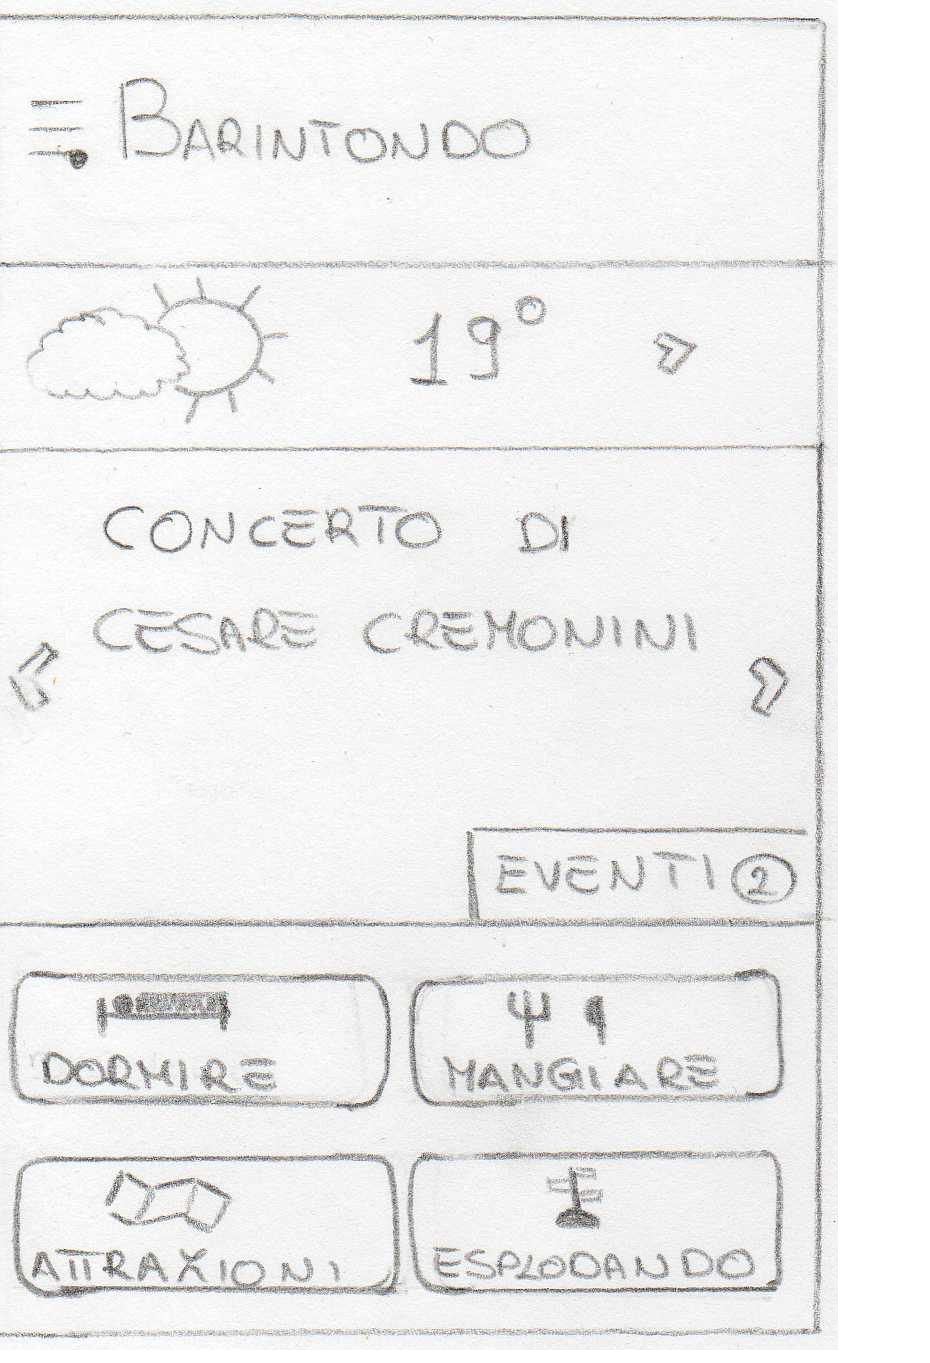 BARINTONDO
19°
CONCERTO DI
CESARE CREMONINI
EVENTI 2
DORMIRE
MANGIARE
ATTRAXIONI
ESPLODANDO